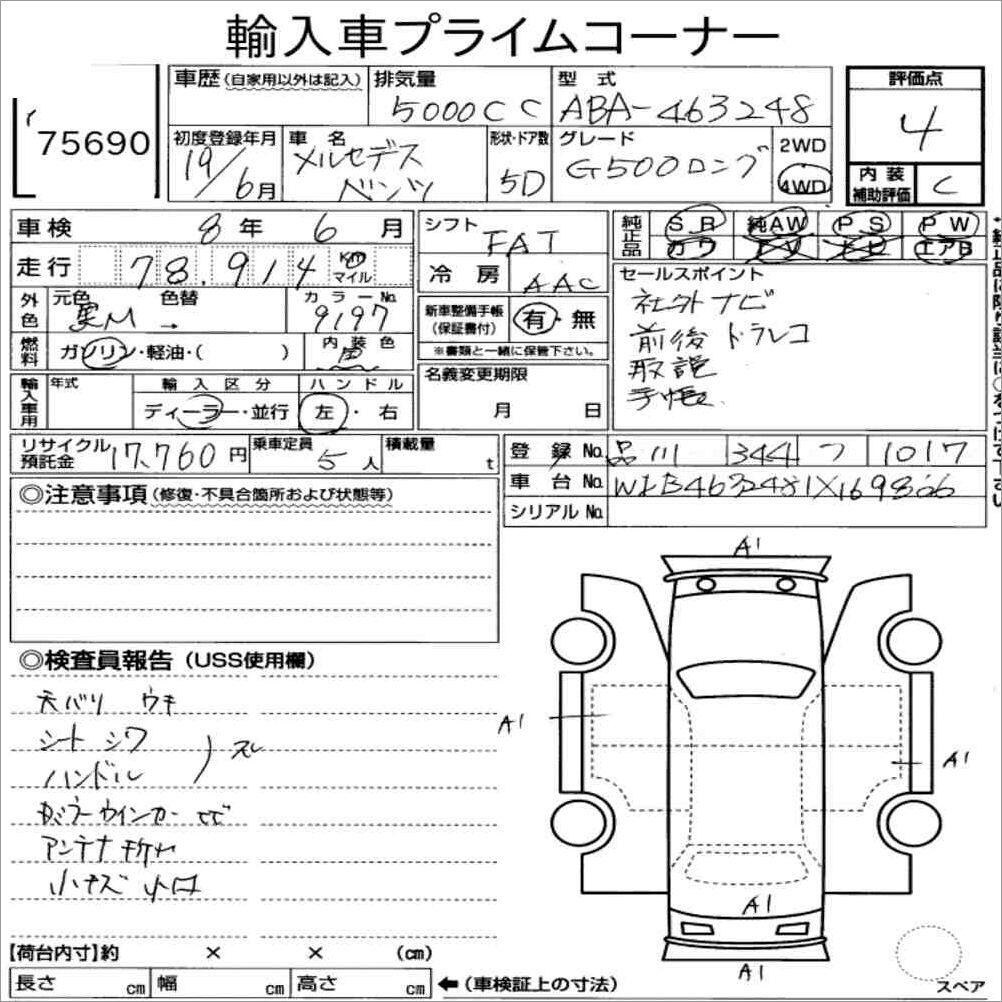 輸入車プライムコーナー
75690
車歴 (自家用以外は記入)
排気量
5000CC
型式
ABA-463248
評価点
4
初度登録年月
19/6月
車名
メルセデス
ベンツ
形状・ドア数
5D
グレード
G500ロング
2WD
4WD
内装
補助評価
C
車検 8年 6月
走行 78.914 km マイル
シフト FAT
冷房 AAC
純正品
SR 純AW PS PW
カワ TV ナビ エアB
外色
元色
黒M →
色替
カラーNo.
9197
新車整備手帳
(保証書付)
有・無
※書類と一緒に保管下さい。
セールスポイント
社外ナビ
前後ドラレコ
取説
手帳
燃料
ガソリン・軽油・( )
内装色
黒
名義変更期限
月 日
輸入車用
年式
輸入区分
ディーラー・並行
ハンドル
左・右
リサイクル
預託金
17.760円
乗車定員
5人
積載量
t
登録No. 品川 344 つ 1017
車台No.
シリアルNo.
◎注意事項 (修復・不具合箇所および状態等)
◎検査員報告 (USS使用欄)
天バリ ウキ
シート シワ
ハンドル
スレ
ウインカー
アンテナ
小キズ 小凹
A1
A1
A1
A1
A1
【荷台内寸】約 × × (cm)
長さ cm 幅 cm 高さ cm ←(車検証上の寸法)
スペア